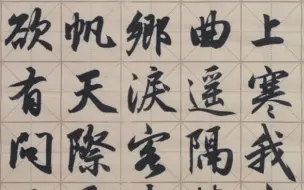 上寒我
曲遥隔
鄉淚客
帆天際
欲有問